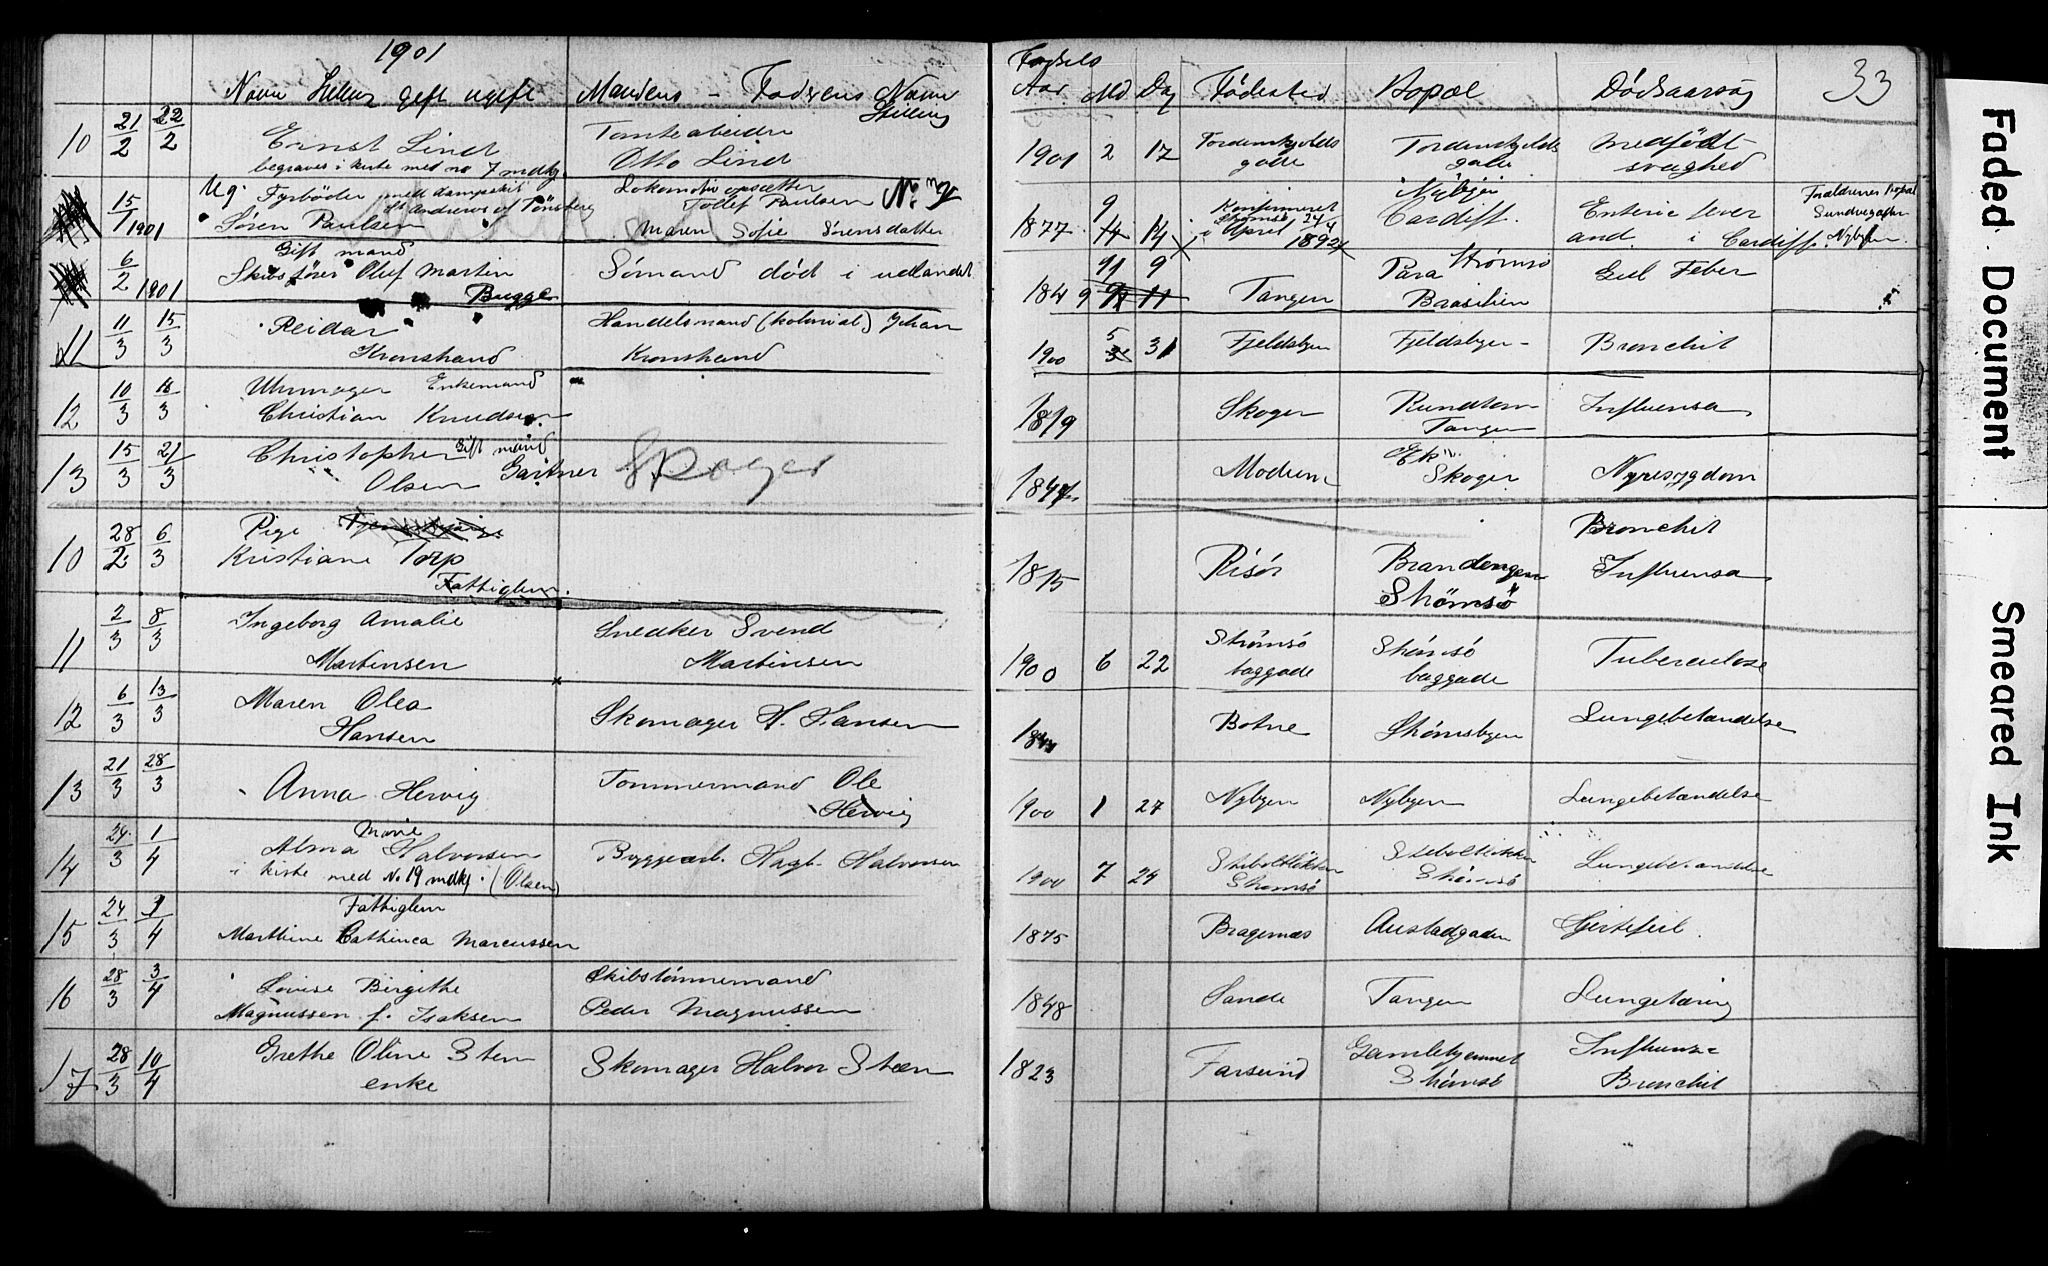 1901
Navn Stilling gift ugift Mandens - Faderens Navn Stilling
Fødsels Aar Md Dag Fødested Bopæl Dødsaarsag 33
10 21/2 22/2 Ernst Lind Tomtearbeider 1901 2 17 Tordenskjolds Tordenskjolds Medfødt
begraves i kiste med no 7 mdkj. Otto Lind gade gade svaghed
15/1 1901 Ug. Fyrbøder med dampskib Lokomotivopsætter No 9 Nybyen Forældrenes bopæl
St Andrews af Tønsberg Tollef Paulsen 1877 14 14 Konfirmeret Strømsø Cardiff. Enteric fever Sundvegaden
Søren Paulsen Maren Sofie Sørensdatter i April 24/4 1892 and. i Cardiff. Nybyen
6/2 1901 Gift mand 11 9 Strømsø
Skibsfører Olef Martin Sømand død i udlandet 1849 11 Tangen Para Gul Feber
Bugge Brasilien
11 11/3 15/3 Reidar Handelsmand (kolonial) Johan 5
Kronstrand Kronstrand 1900 31 Fjeldsbyen Fjeldsbyen - Bronchit
12 10/3 16/3 Uhrmager Enkemand
Christian Knudsen 1819 Skoger Rundtom Influensa
Tangen
13 15/3 21/3 Christopher Gift mand Skoger Ek
Olsen Gartner 1847 Modum Skoger Nyresygdom
10 28/2 6/3 Pige Bronchit
Kristiane Torp 1815 Risør Brandengen Influensa
Fattiglem. Strømsø
11 2/3 8/3 Ingeborg Amalie Snedker Svend 1900 6 22 Strømsø Strømsø Tuberculose
Martinsen Martinsen baggade baggade
12 6/3 13/3 Maren Olea Skomager H. Hansen Botne Strømsbyen Lungebetændelse
Hansen
13 21/3 28/3 Anna Hervig Tømmermand Ole 1900 1 27 Nybyen Nybyen Lungebetændelse
Hervig
14 24/3 1/4 Marie
Alma Halvorsen Byggearb. Hagb. Halvorsen 1900 7 24 Steboltløkken Steboltløkken Lungebetændelse
i kiste med No 19 mdkj. (Olsen) Strømsø Strømsø
15 24/3 3/4 Fattiglem
Marthine Cathinca Marcussen 1875 Bragernæs Austadgaden Hjertefeil.
16 28/3 3/4 Lovise Birgithe Skibstømmermand 1848 Sande Tangen Lungetæring
Magnussen f. Isaksen Peder Magnussen
17 28/3 10/4 Grethe Oline Steen Skomager Halvor Steen 1823 Farsund Gamlehjemmet Influenza
enke Strømsø Bronchit
Faded Document
Smeared Ink